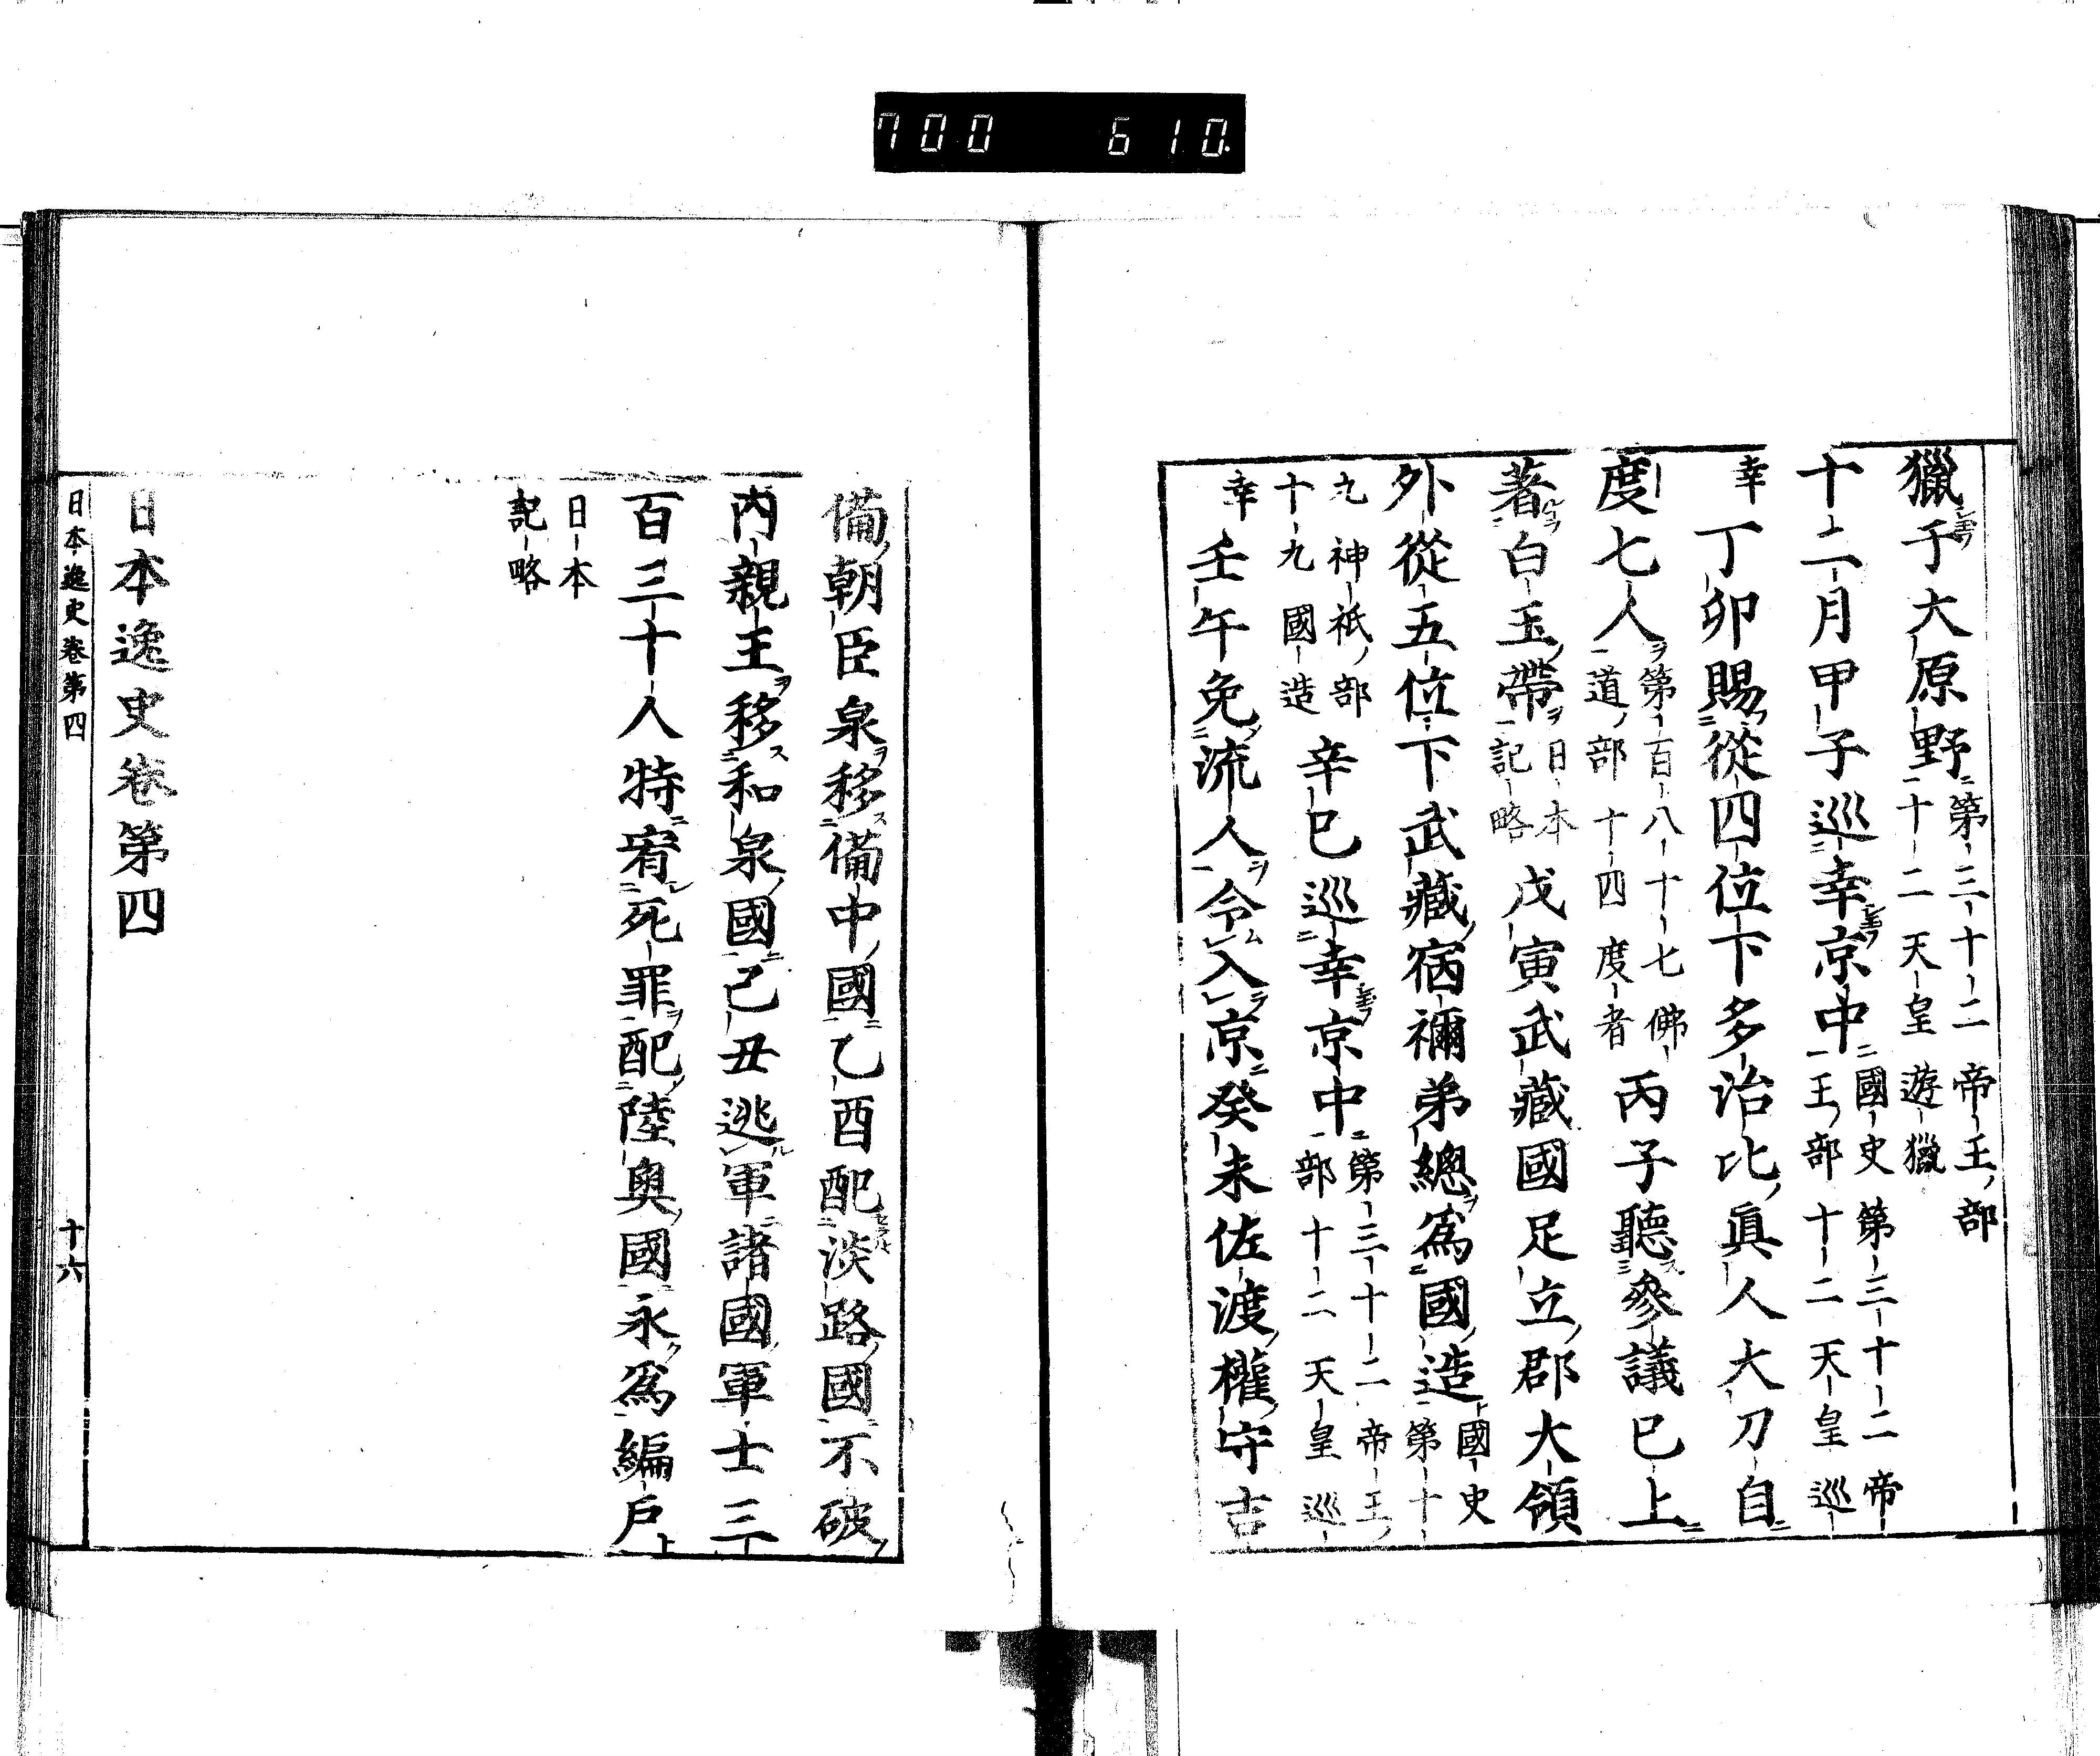 700 610.
獵于大原野第三十二帝王部
十二天皇遊獵
十二月甲子巡幸京中國史第三十二帝
王部十二天皇巡
幸丁卯賜從四位下多治比眞人大刀自
度七人第百八十七佛
道部十四度者丙子聽參議已上
著白玉帶日本
記略戊寅武藏國足立郡大領
外從五位下武藏宿禰弟總爲國造國史
第十
九神祇部
十九國造辛巳巡幸京中第三十二帝王
部十二天皇巡
幸壬午免流人令入京癸未佐渡權守吉
備朝臣泉移備中國乙酉配淡路國不破
内親王移和泉國己丑逃軍諸國軍士三
百三十人特宥死罪配陸奧國永爲編戶
日本
記略
日本逸史卷第四
日本逸史卷第四 十六